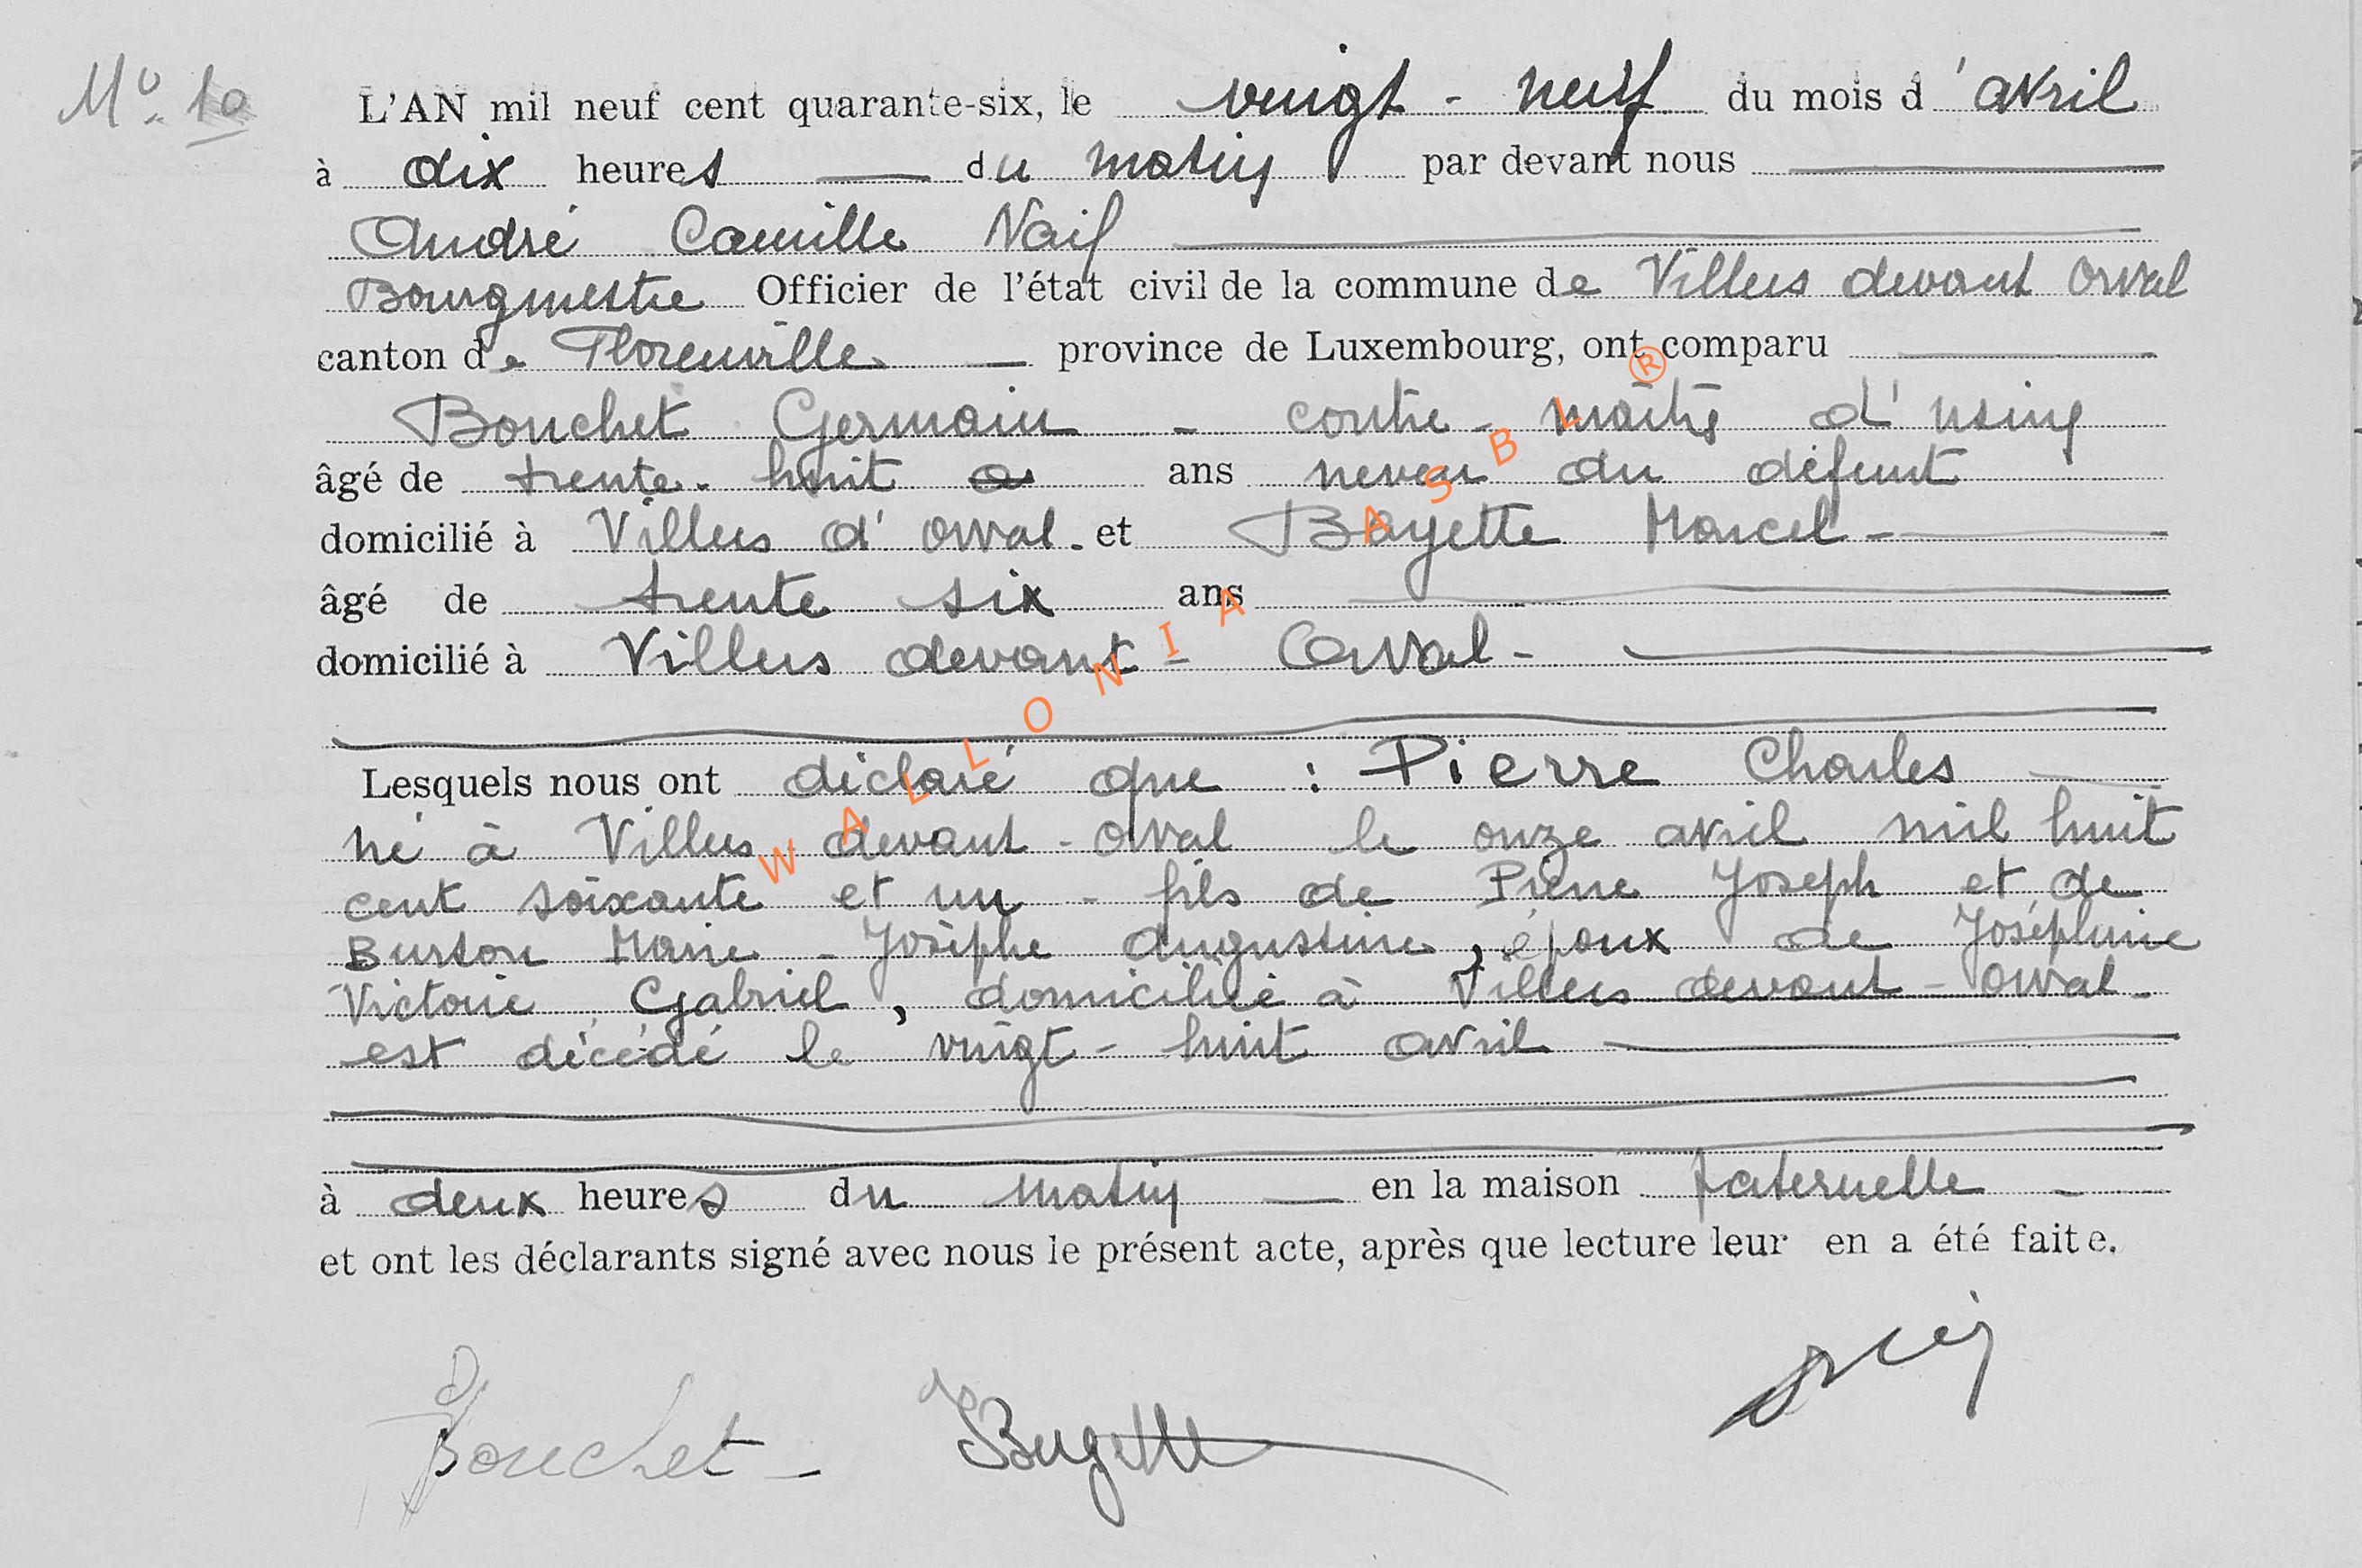 N° 10
L'AN mil neuf cent quarante-six, le vingt - neuf du mois d'avril
à dix heures du matin par devant nous
André Camille Naif
Bourgmestre Officier de l'état civil de la commune de Villers devant Orval
canton de Florenville province de Luxembourg, ont comparu
Bouchet Germain - contre - maître d'usine
âgé de trente - huit ans neveu du défunt
domicilié à Villers d'Orval. et Bayette Marcel -
âgé de trente six ans
domicilié à Villers devant - Orval -
Lesquels nous ont déclaré que : Pierre Charles
né à Villers devant - Orval le onze avril mil huit
cent soixante et un - fils de Pierre Joseph et de
Burton Marie - Josèphe Augustine, époux de Joséphine
Victorie Gabriel, domicilié à Villers devant - Orval -
est décédé le vingt - huit avril
à deux heures du matin en la maison paternelle -
et ont les déclarants signé avec nous le présent acte, après que lecture leur en a été faite.
Bouchet -
WALLONIA ASBL ®